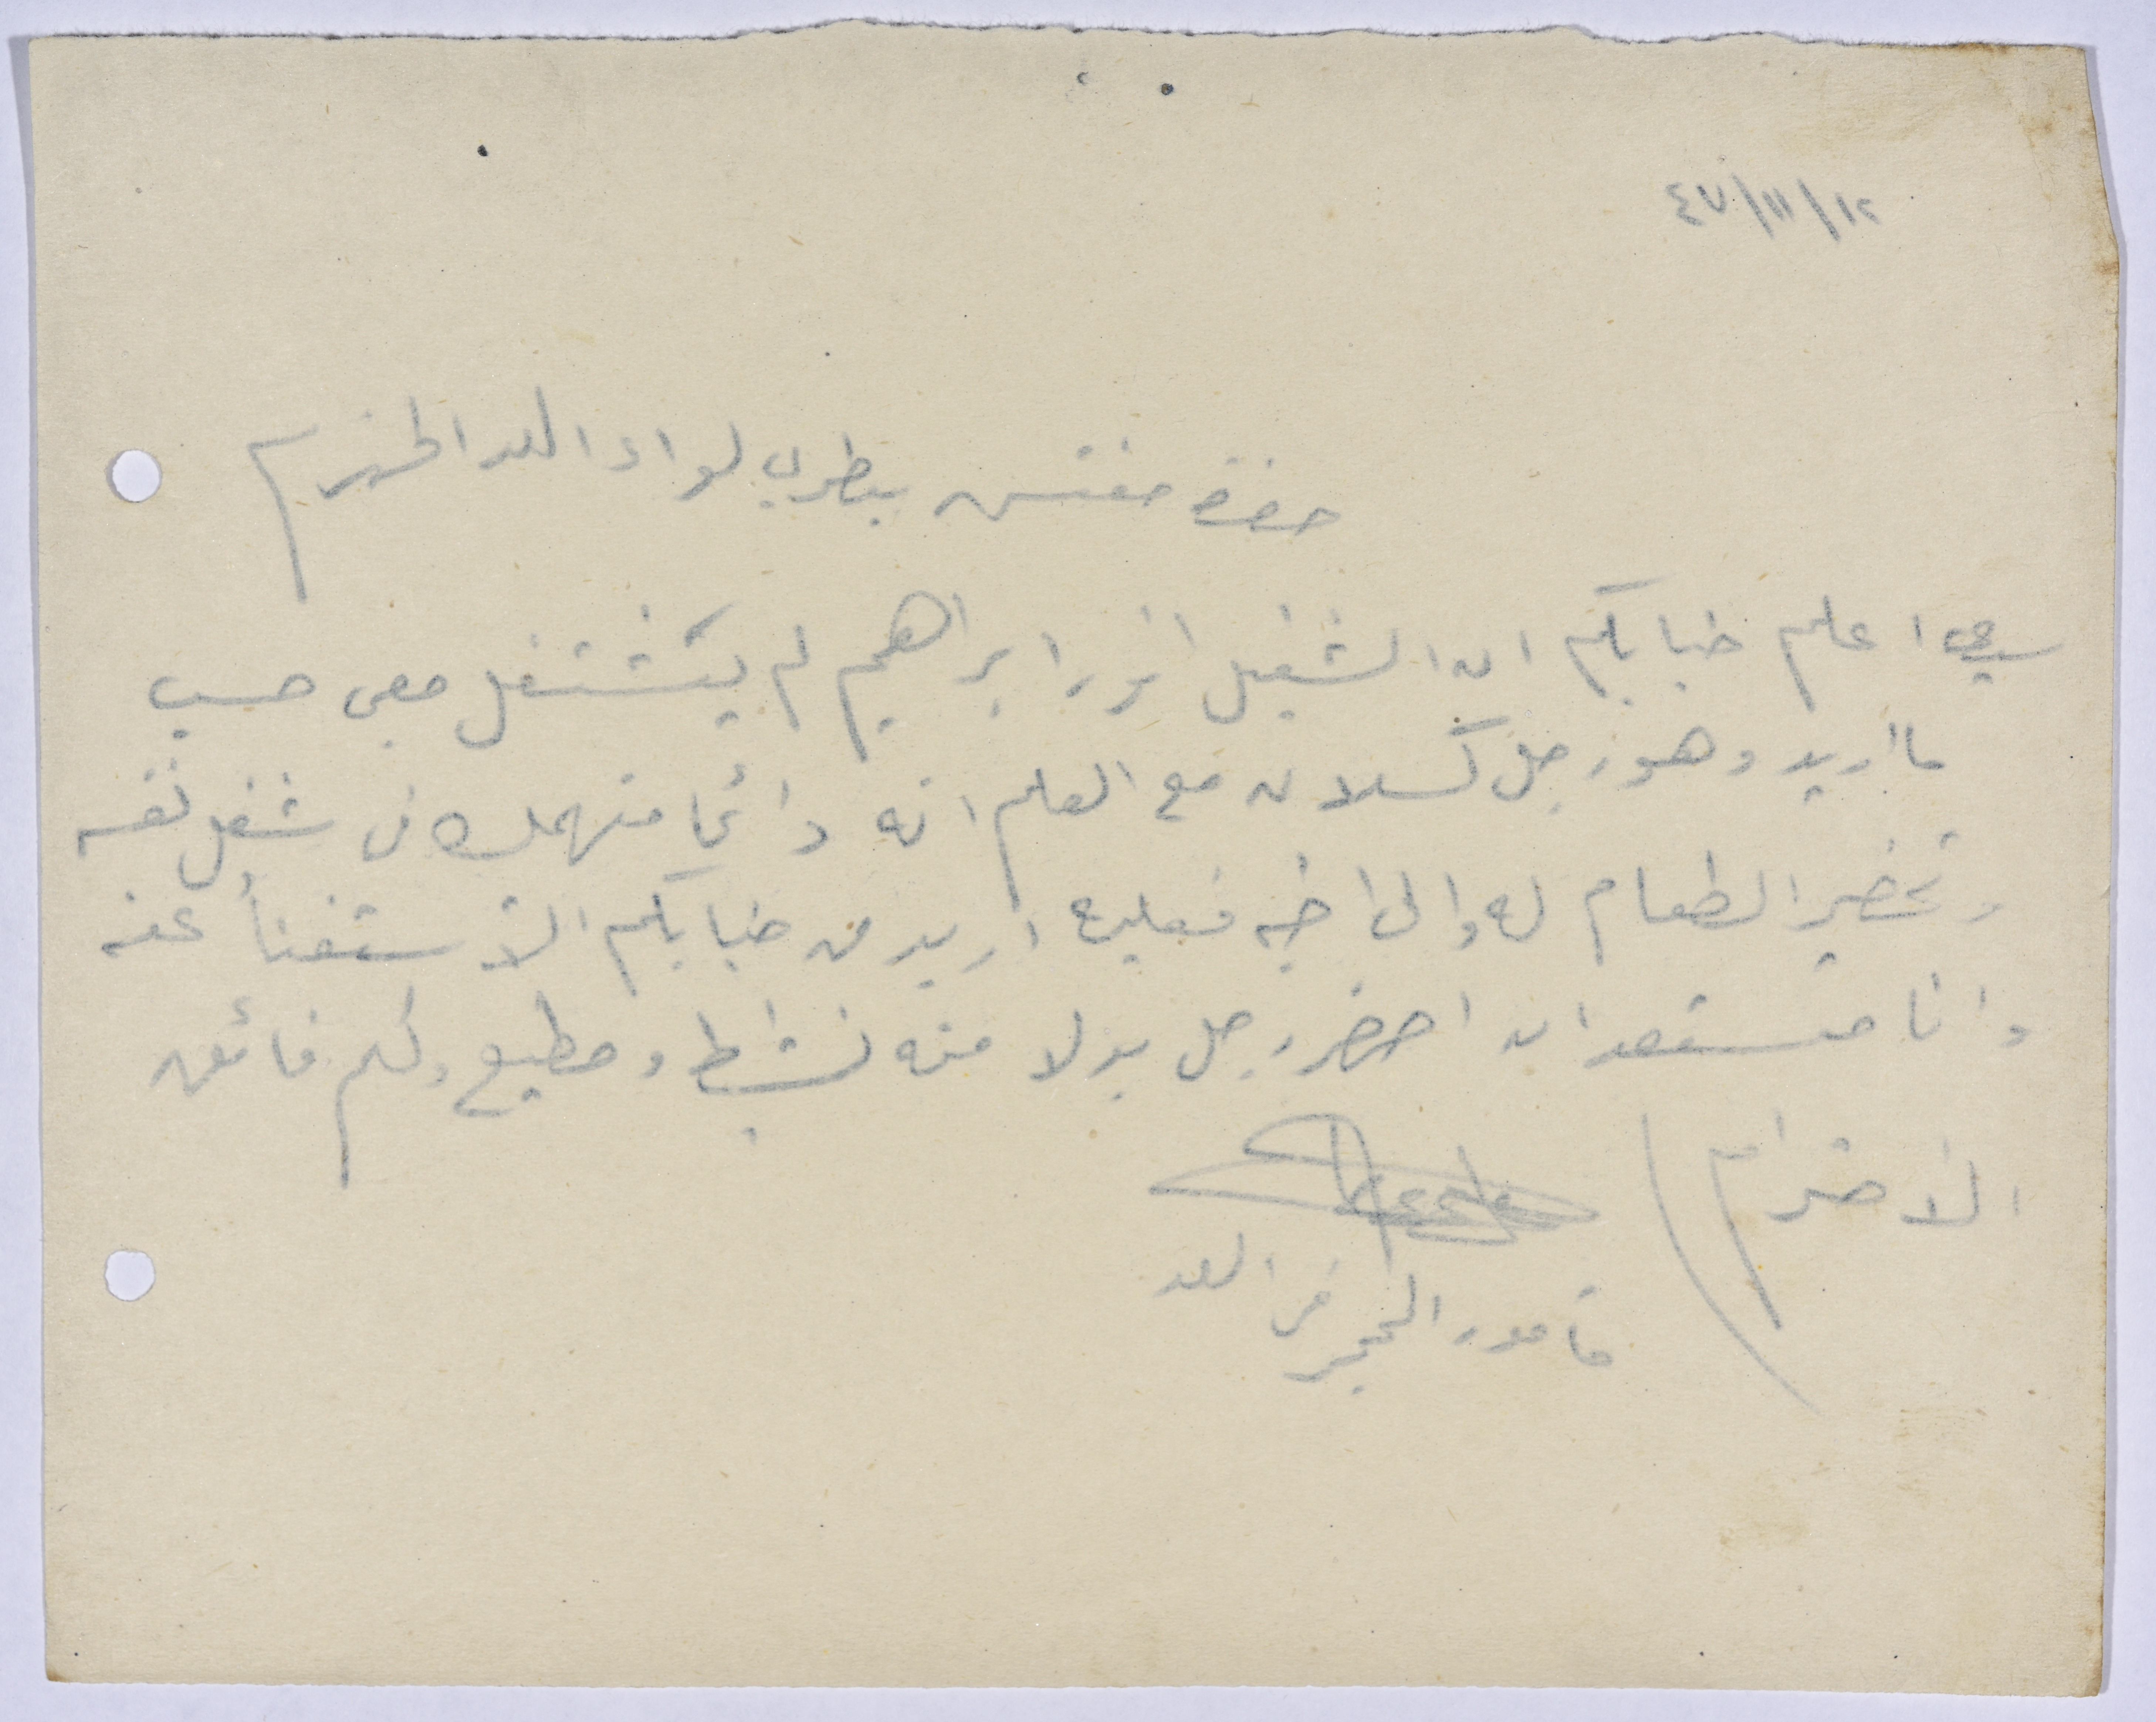 ١٢/١١/٤٧
حضرة مفتش بيطري لواء اللد المحترم
سيدي اعلم جنابكم ان الشغيل انور ابراهيم لم يشتغل معي حسب
ما اريد وهو رجل كسلان مع العلم انه دائما منهمك في شغل نفسه
وتحضير الطعام له والى اخيه فعليه اريد من جنابكم الاستغناأ عنه
وانا مستعد ان احضر رجل بدلا منه نشيط ومطيع ولكم فائق
الاحترام
مامور الحجر في اللد